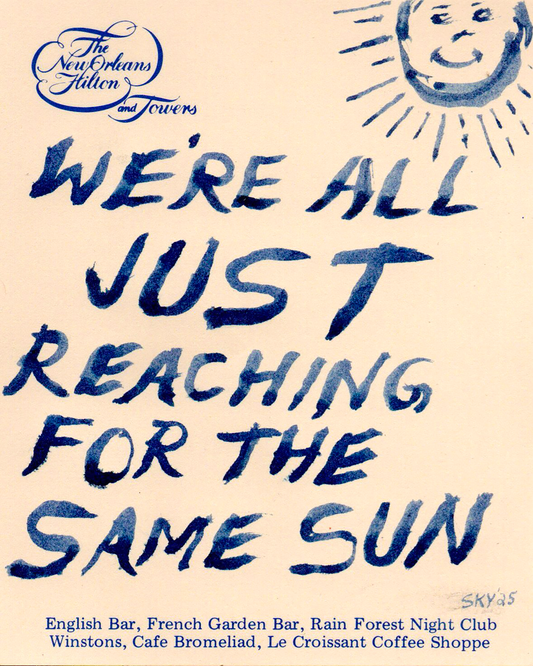 The
New Orleans
Hilton
and Towers
WE'RE ALL
JUST
REACHING
FOR THE
SAME SUN
SKY '25
English Bar, French Garden Bar, Rain Forest Night Club
Winstons, Cafe Bromeliad, Le Croissant Coffee Shoppe